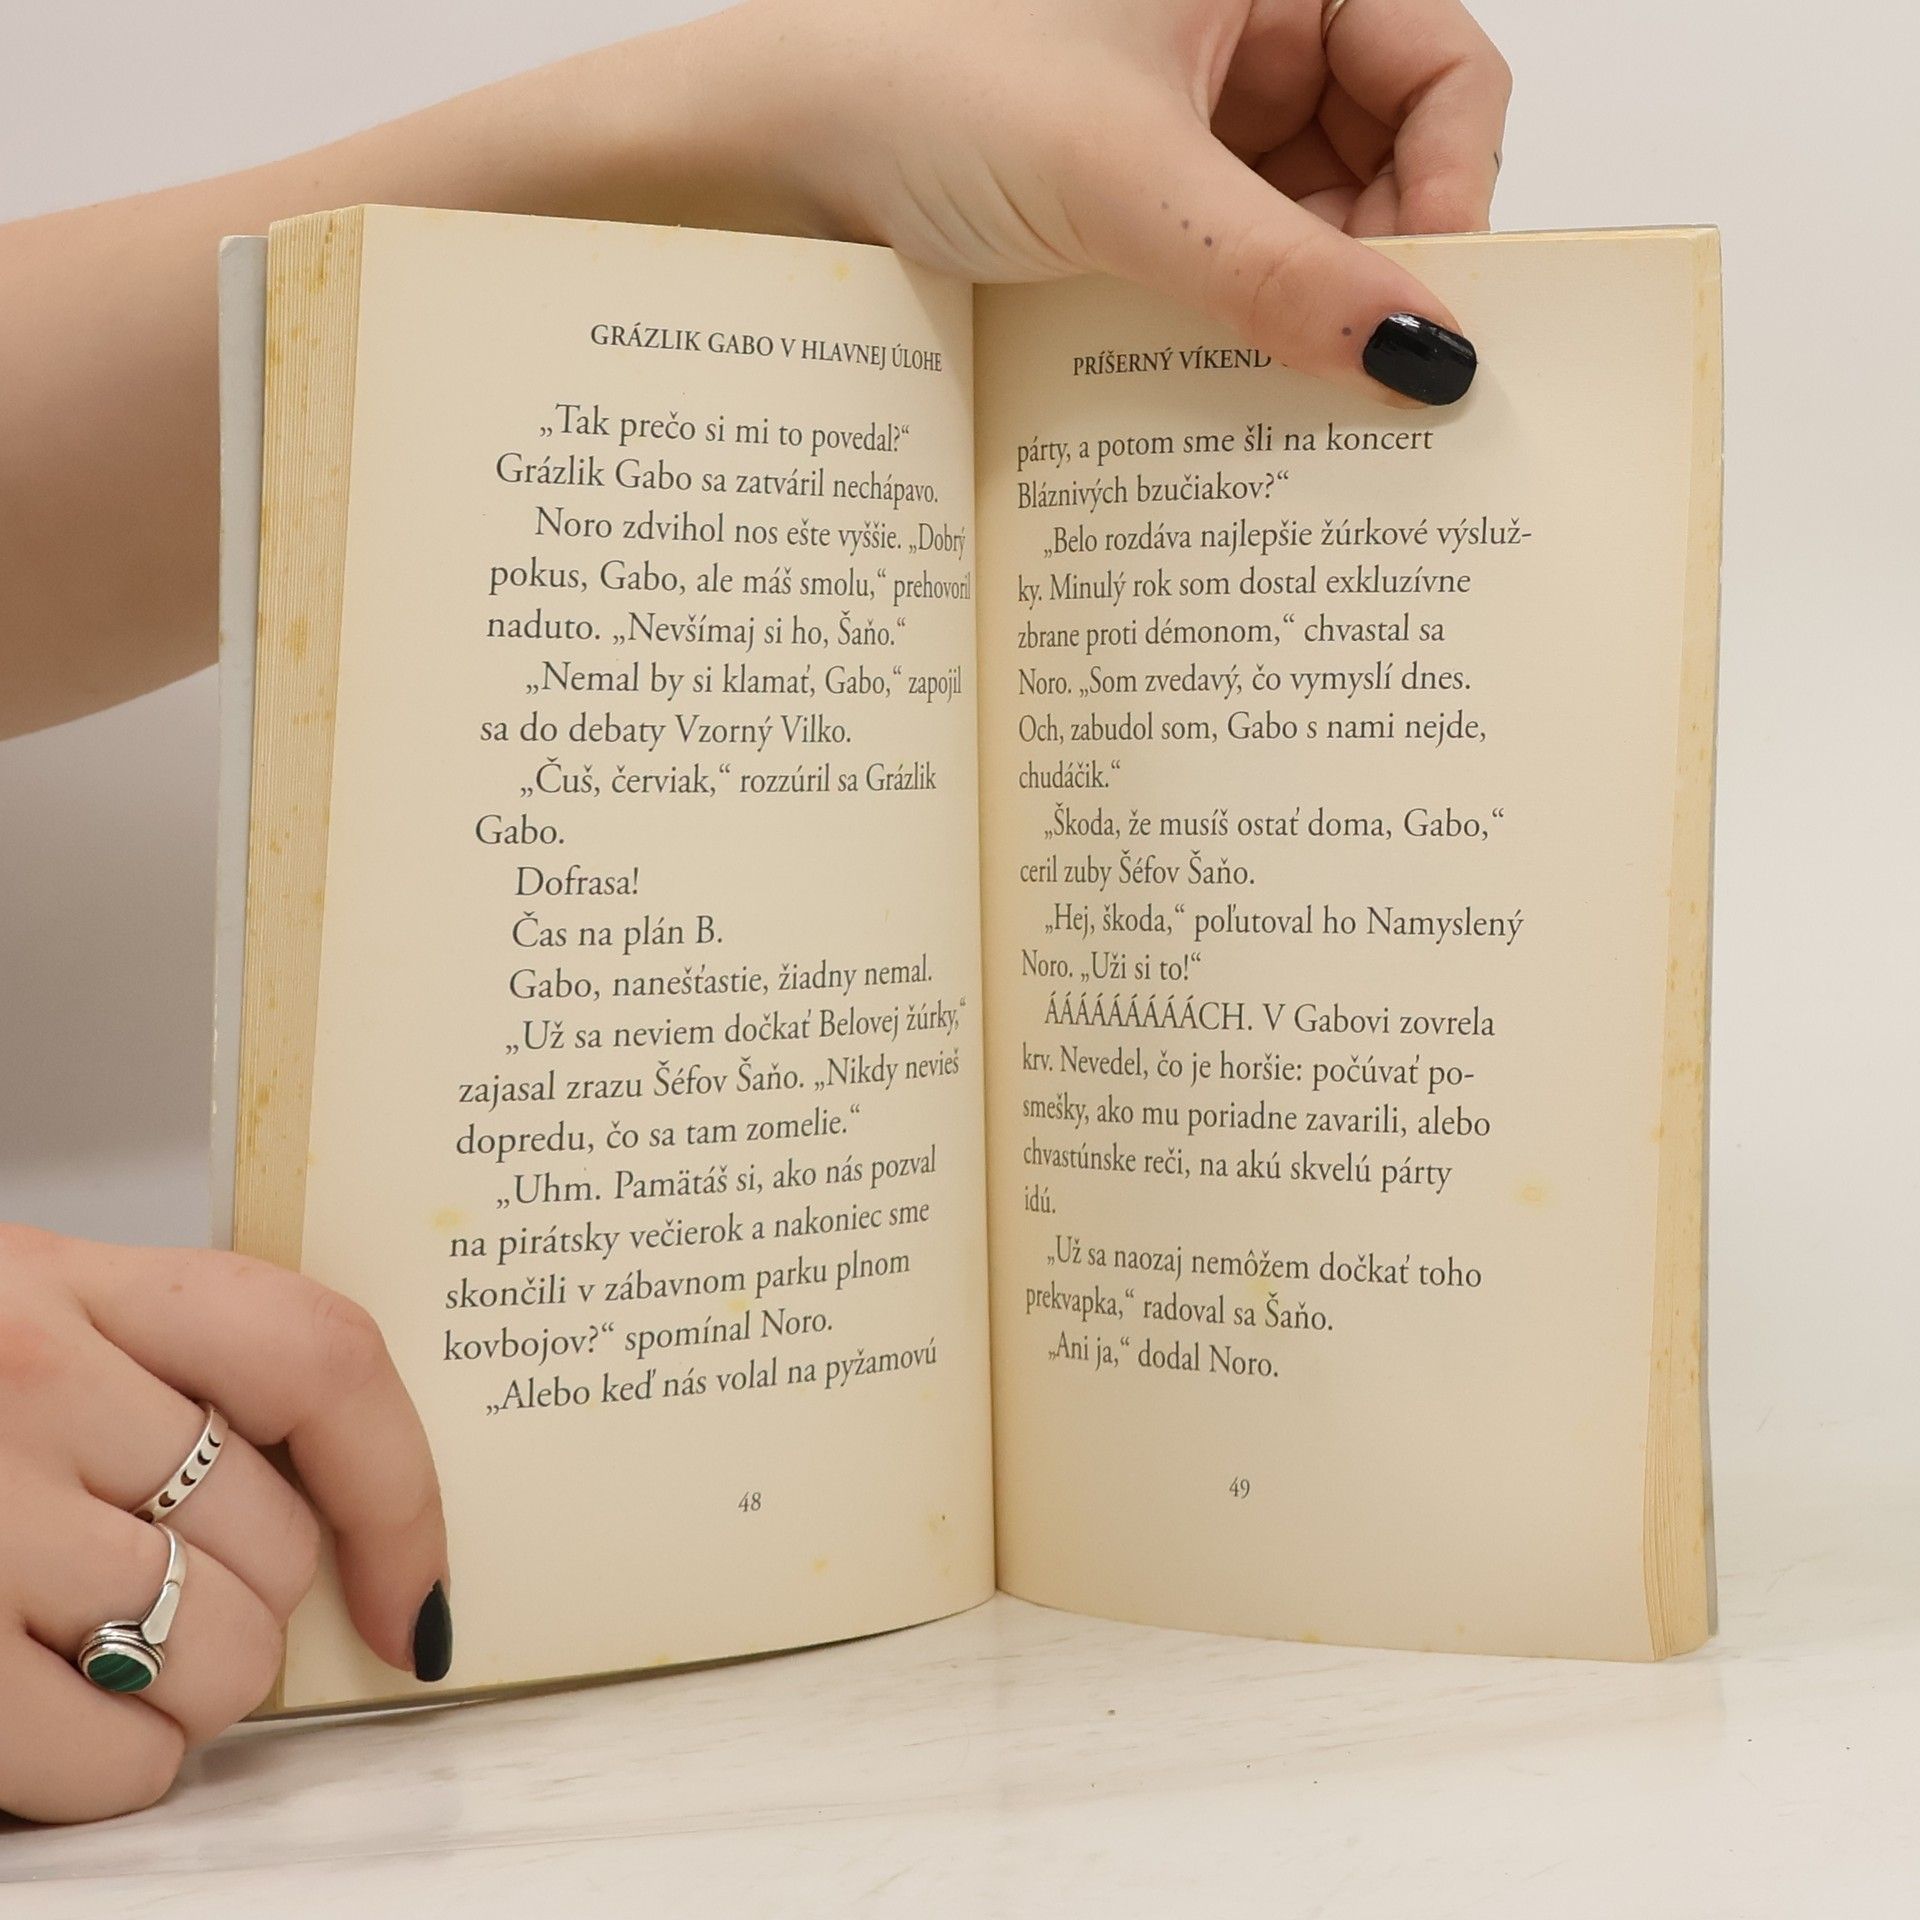 GRÁZLIK GABO V HLAVNEJ ÚLOHE
„Tak prečo si mi to povedal?“
Grázlik Gabo sa zatváril nechápavo.
Noro zdvihol nos ešte vyššie. „Dobrý
pokus, Gabo, ale máš smolu,“ prehovoril
naduto. „Nevšímaj si ho, Šaňo.“
„Nemal by si klamať, Gabo,“ zapojil
sa do debaty Vzorný Vilko.
„Čuš, červiak,“ rozzúril sa Grázlik
Gabo.
Dofrasa!
Čas na plán B.
Gabo, nanešťastie, žiadny nemal.
„Už sa neviem dočkať Belovej žúrky,“
zajasal zrazu Šéfov Šaňo. „Nikdy nevieš
dopredu, čo sa tam zomelie.“
„Uhm. Pamätáš si, ako nás pozval
na pirátsky večierok a nakoniec sme
skončili v zábavnom parku plnom
kovbojov?“ spomínal Noro.
„Alebo keď nás volal na pyžamovú
48
PRÍŠERNÝ VÍKEND
párty, a potom sme šli na koncert
Bláznivých bzučiakov?“
„Belo rozdáva najlepšie žúrkové výsluž-
ky. Minulý rok som dostal exkluzívne
zbrane proti démonom,“ chvastal sa
Noro. „Som zvedavý, čo vymyslí dnes.
Och, zabudol som, Gabo s nami nejde,
chudáčik.“
„Škoda, že musíš ostať doma, Gabo,“
ceril zuby Šéfov Šaňo.
„Hej, škoda,“ poľutoval ho Namyslený
Noro. „Uži si to!“
ÁÁÁÁÁÁÁÁÁCH. V Gabovi zovrela
krv. Nevedel, čo je horšie: počúvať po-
smešky, ako mu poriadne zavarili, alebo
chvastúnske reči, na akú skvelú párty
idú.
„Už sa naozaj nemôžem dočkať toho
prekvapka,“ radoval sa Šaňo.
„Ani ja,“ dodal Noro.
49